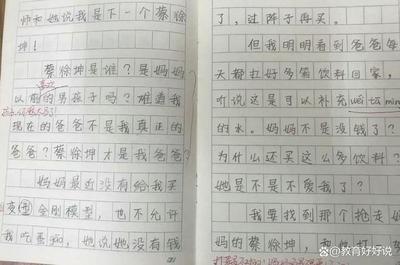 师和她说我是下一个蔡徐
坤！
蔡徐坤是谁？是妈妈
喜欢
以前的男孩子吗？难道我
现在的爸爸不是我真正的
爸爸？蔡徐坤才是我爸爸？
妈妈最近没有给我买
变型金刚模型，也不允许
我吃蛋糕，她说她没有钱
了，过阵子再买。
但我明明看到爸爸每
天都扛好多箱饮料回家，
听说这是可以补充wei ta min
的水。妈妈不是没钱了？
为什么还买这么多饮料？
她是不是不爱我了？
我要找到那个抢走妈
妈的蔡徐坤，和他打
@教育好好说